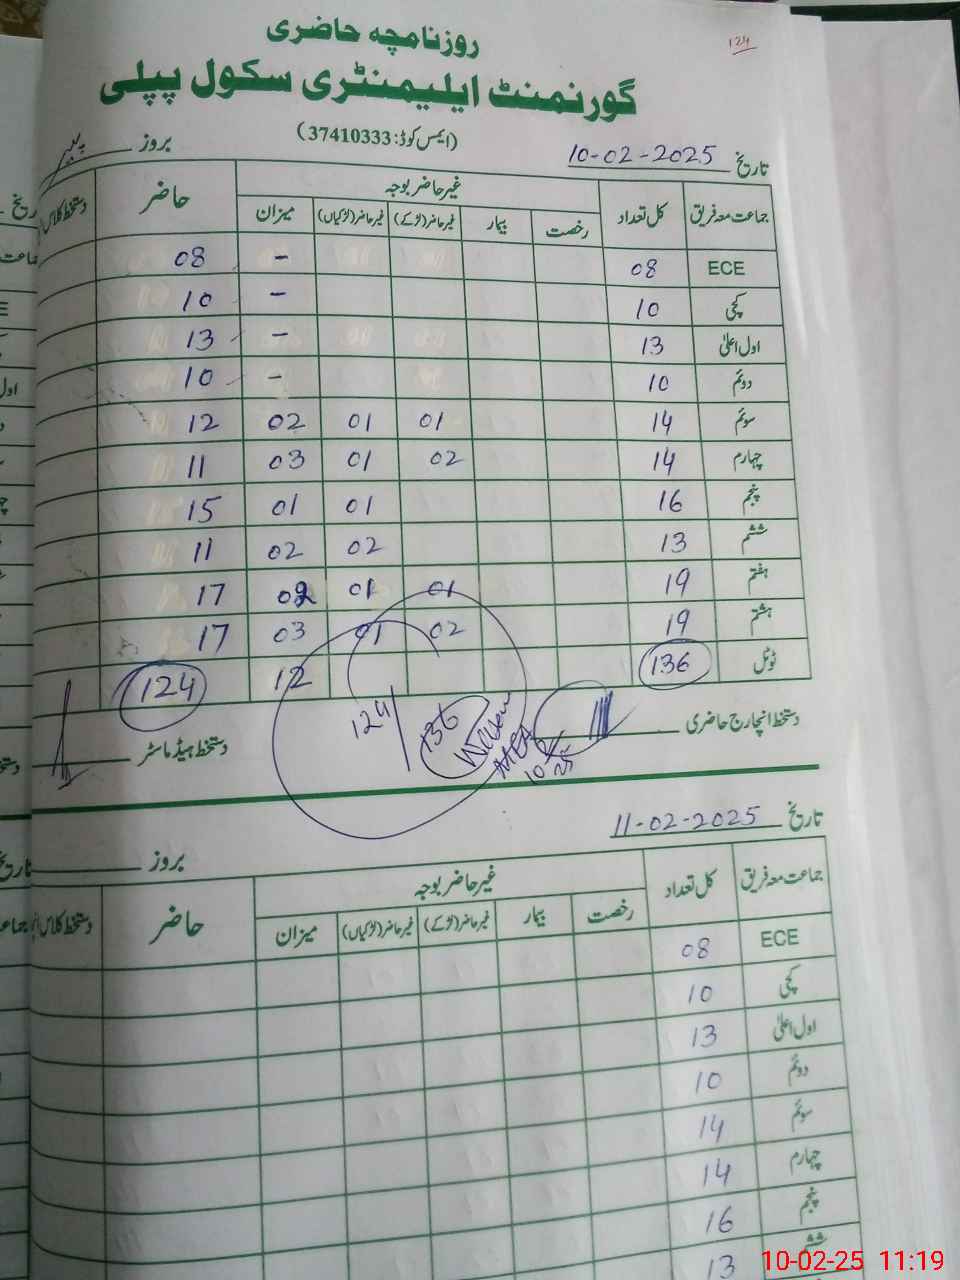 124
روزنامچہ حاضری
گورنمنٹ ایلیمنٹری سکول پپلی
(ایمس کوڈ: 37410333)
تاریخ 10-02-2025 بروز پیر
جماعت معہ فریق کل تعداد غیر حاضر بوجہ حاضر دستخط کلاس
رخصت بیمار غیر حاضر (لڑکے) غیر حاضر (لڑکیاں) میزان
ECE 08 - 08
کچی 10 - 10
اول اعلیٰ 13 - 13
دوئم 10 - 10
سوئم 14 01 01 02 12
چہارم 14 02 01 03 11
پنجم 16 01 01 15
ششم 13 02 02 11
ہفتم 19 01 01 02 17
ہشتم 19 02 01 03 17
ٹوٹل 136 12 124
دستخط انچارج حاضری دستخط ہیڈ ماسٹر
124 136
AEO
10-2-25
تاریخ 11-02-2025 بروز
جماعت معہ فریق کل تعداد غیر حاضر بوجہ حاضر دستخط کلاس
رخصت بیمار غیر حاضر (لڑکے) غیر حاضر (لڑکیاں) میزان
ECE 08
کچی 10
اول اعلیٰ 13
دوئم 10
سوئم 14
چہارم 14
پنجم 16
ششم 13
10-02-25 11:19